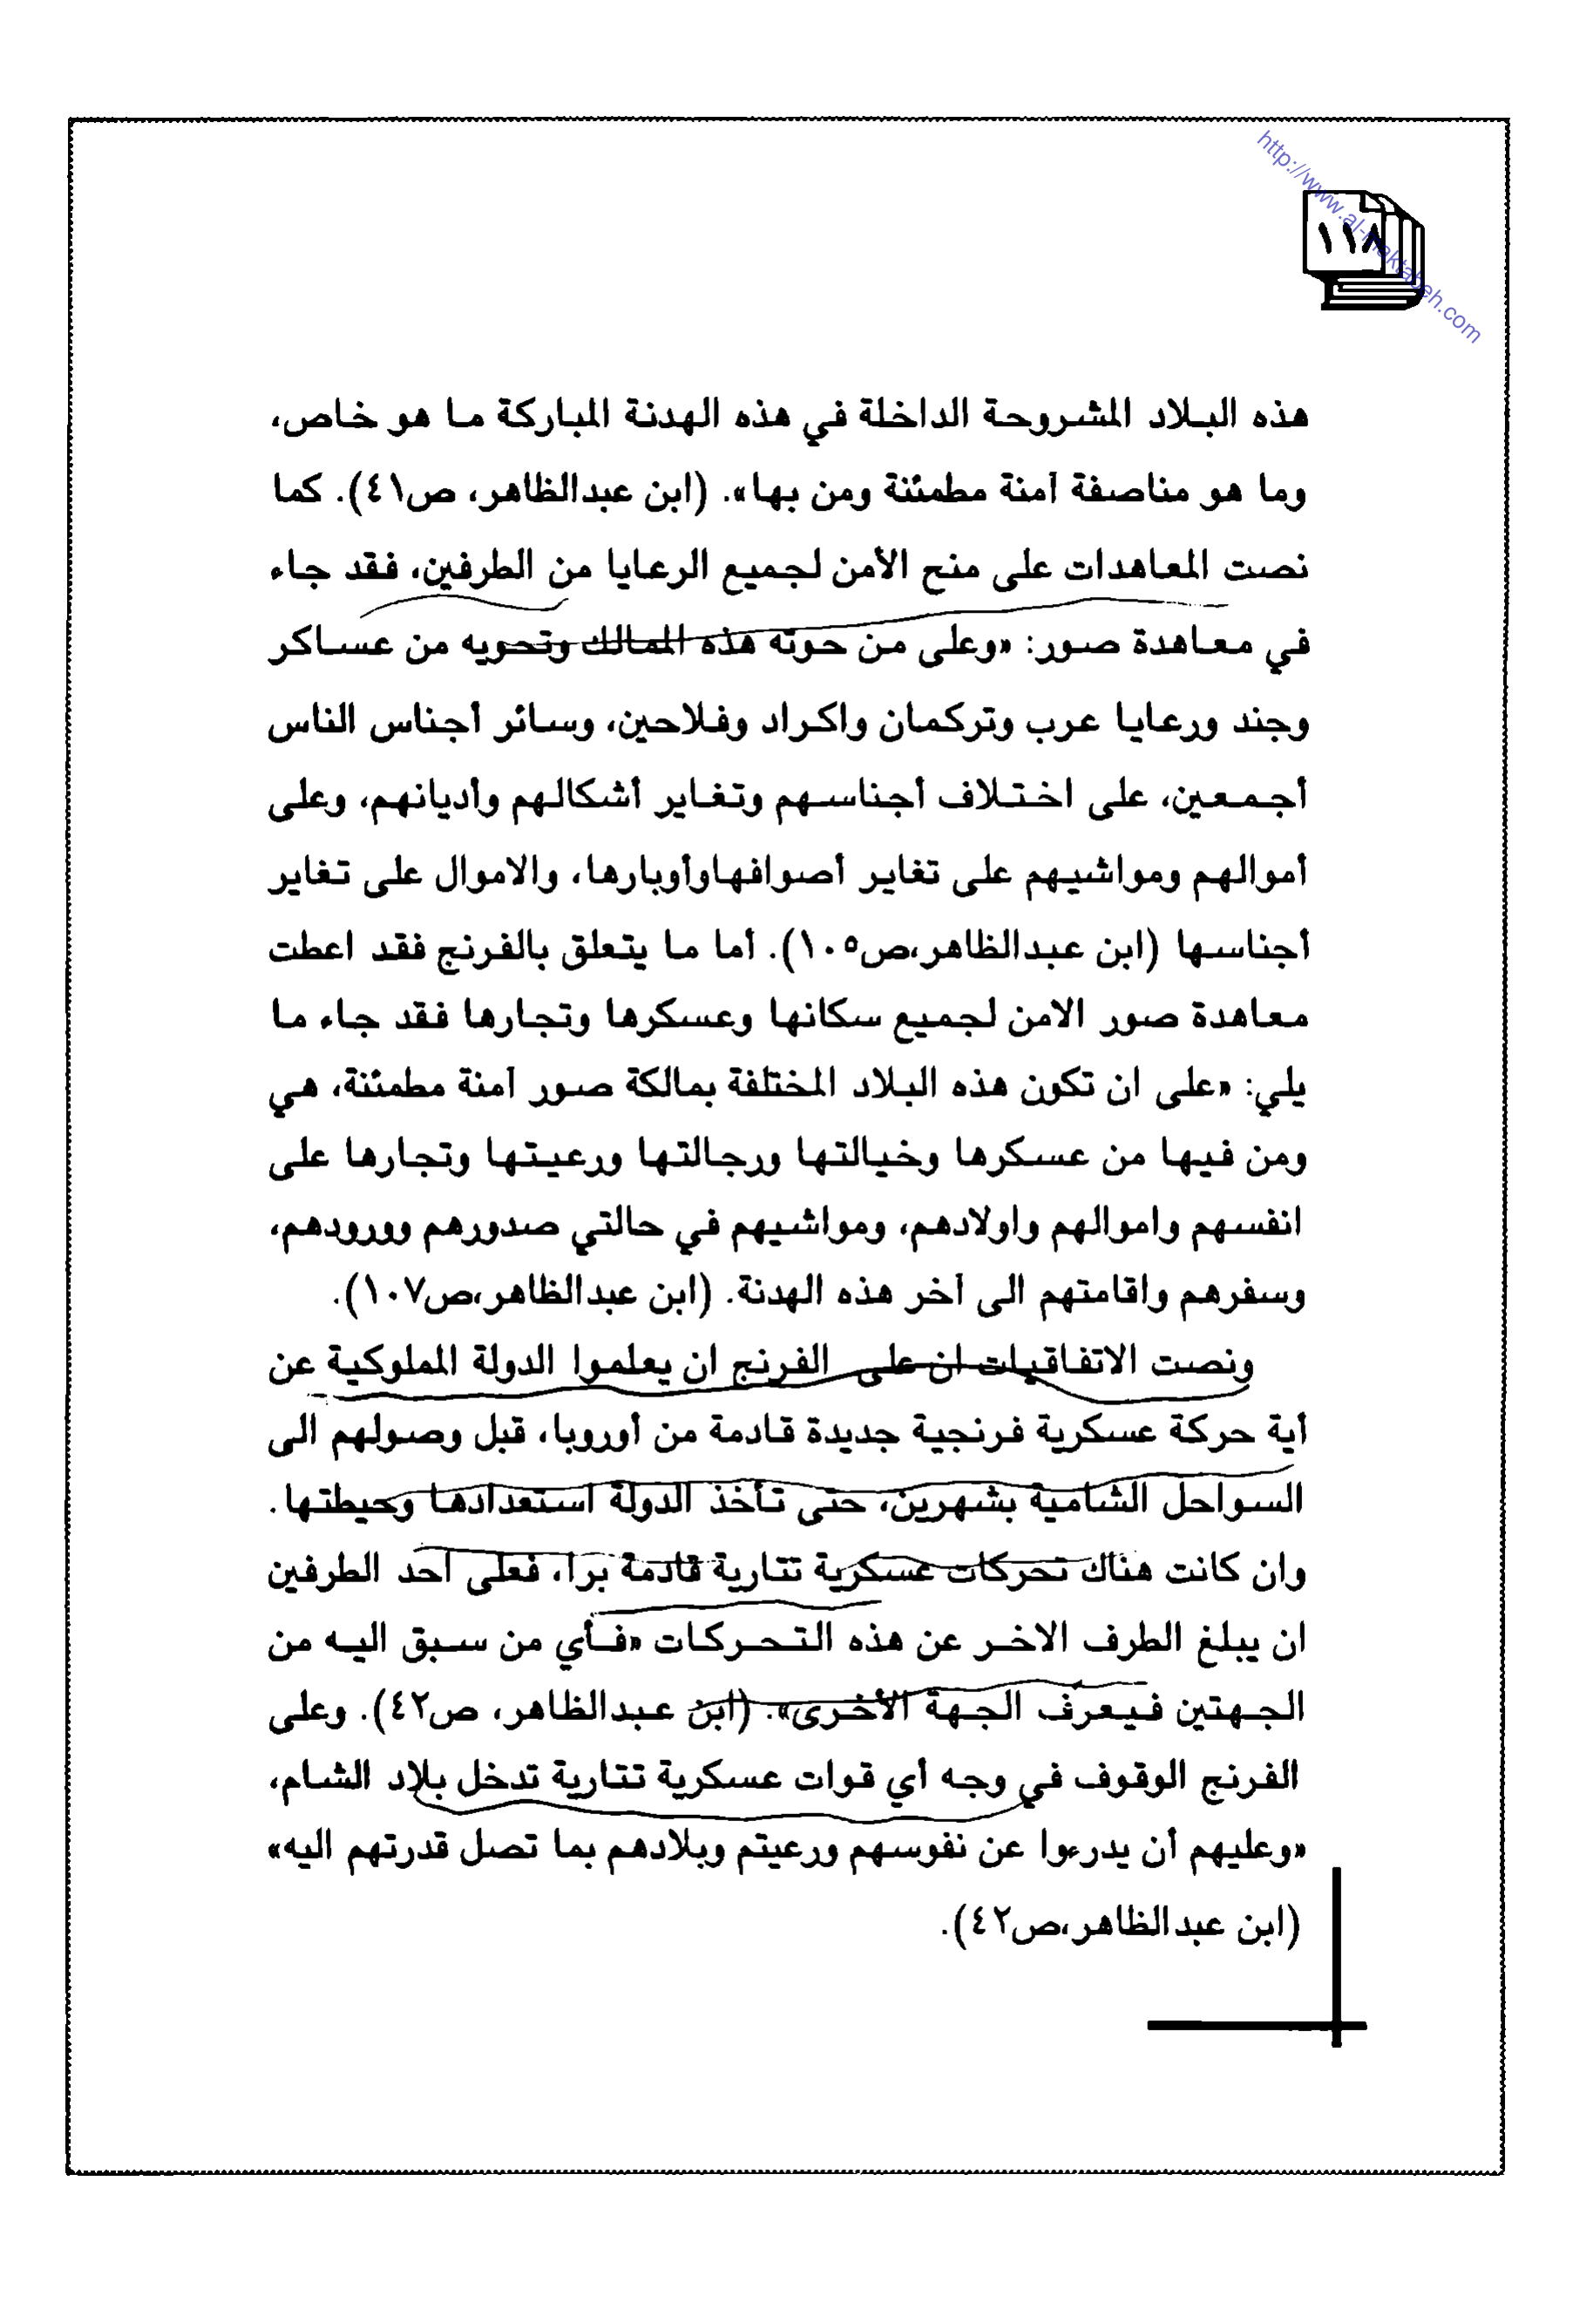 http://www.al-maktabeh.com
١١٨
هذه البلاد المشروحة الداخلة في هذه الهدنة المباركة ما هو خاص،
وما هو مناصفة آمنة مطمئنة ومن بها». (ابن عبدالظاهر، ص٤١). كما
نصت المعاهدات على منح الأمن لجميع الرعايا من الطرفين، فقد جاء
في معاهدة صور: «وعلى من حوته هذه الممالك وتحويه من عساكر
وجند ورعايا عرب وتركمان واكراد وفلاحين، وسائر أجناس الناس
أجمعين، على اختلاف أجناسهم وتغاير أشكالهم وأديانهم، وعلى
أموالهم ومواشيهم على تغاير أصوافهاوأوبارها، والاموال على تغاير
أجناسها (ابن عبدالظاهر،ص١٠٥). أما ما يتعلق بالفرنج فقد اعطت
معاهدة صور الامن لجميع سكانها وعسكرها وتجارها فقد جاء ما
يلي: «على ان تكون هذه البلاد المختلفة بمالكة صور آمنة مطمئنة، هي
ومن فيها من عسكرها وخيالتها ورجالتها ورعيتها وتجارها على
انفسهم واموالهم واولادهم، ومواشيهم في حالتي صدورهم وورودهم،
وسفرهم واقامتهم الى آخر هذه الهدنة. (ابن عبدالظاهر،ص١٠٧).
ونصت الاتفاقيات ان على الفرنج ان يعلموا الدولة المملوكية عن
أية حركة عسكرية فرنجية جديدة قادمة من أوروبا، قبل وصولهم الى
السواحل الشامية بشهرين، حتى تأخذ الدولة استعدادها وحيطتها.
وان كانت هناك تحركات عسكرية تتارية قادمة برا، فعلى احد الطرفين
ان يبلغ الطرف الاخر عن هذه التحركات «فأي من سبق اليه من
الجهتين فيعرف الجهة الأخرى». (ابن عبدالظاهر، ص٤٢). وعلى
الفرنج الوقوف في وجه أي قوات عسكرية تتارية تدخل بلاد الشام،
«وعليهم أن يدرءوا عن نفوسهم ورعيتم وبلادهم بما تصل قدرتهم اليه»
(ابن عبدالظاهر،ص٤٢).